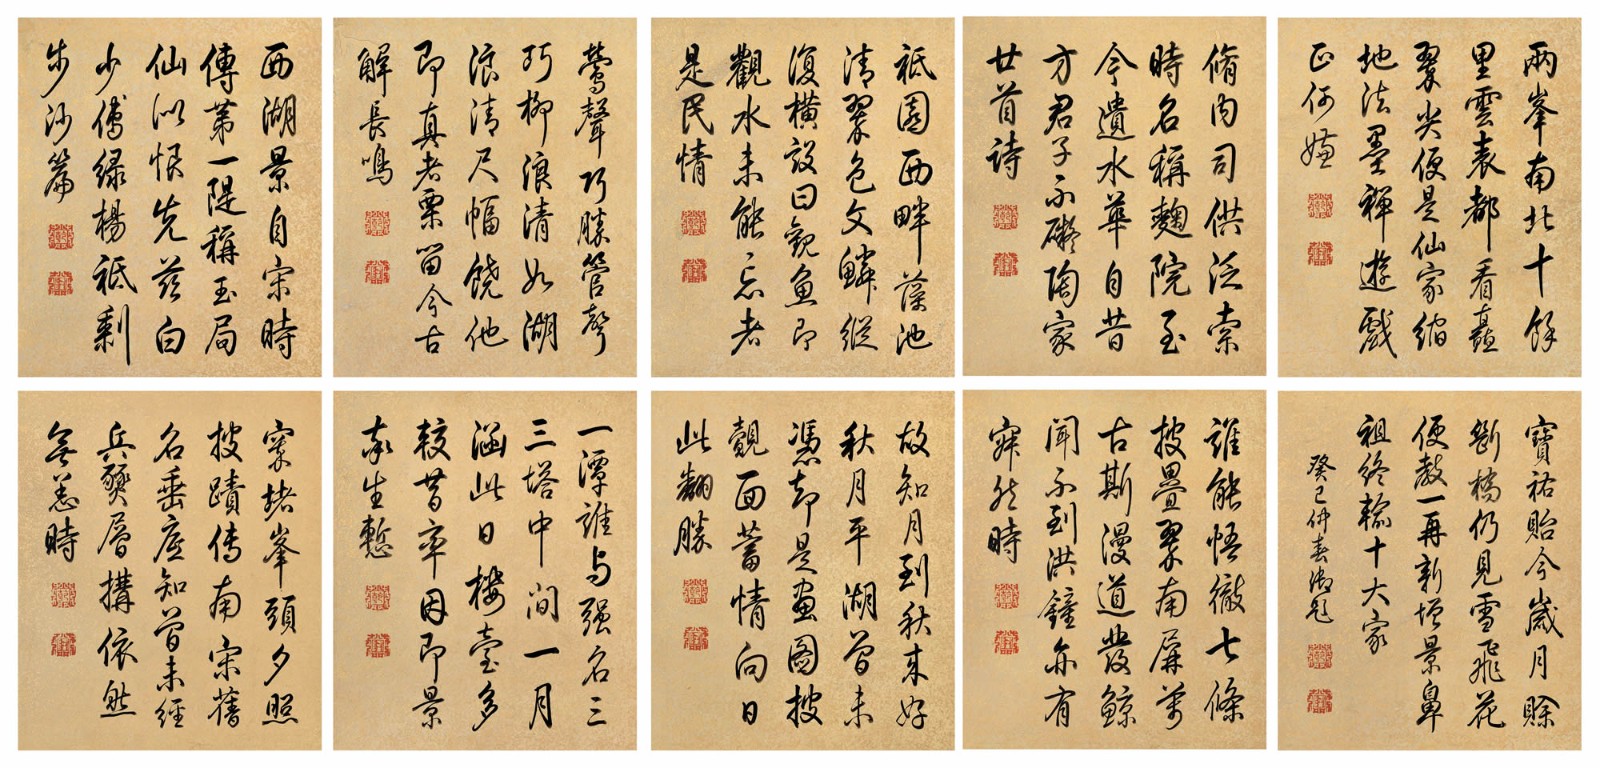 西湖景自宋時
傳苐一隄稱玉局
仙似恨先茲白
少傅緑楊祗剩
步沙篇
鶯聲巧勝管聲
巧柳浪清如湖
浪清尺幅饒他
即真者栗留今古
解長鳴
祗園西畔藻池
清翠色文鱗縱
復横設曰觀魚即
觀水未能忘者
是民情
脩内司供泛索
時名稱麯院至
今遺水華自昔
方君子不礙陶家
廿首詩
兩峯南北十餘
里雲表都看矗
翠尖便是仙家縮
地法墨禪遊戲
正何嫌
窣堵峯頭夕照
披蹟傳南宋舊
名垂底知曾未經
兵燹層構依然
無恙時
一潭誰与强名三
三塔中間一月
涵此日樓臺多
較昔率因即景
奉生慙
故知月到秋来好
秋月平湖曾未
憑却是畫圖披
覿面蓄情向日
此翻勝
誰能悟徹七條
披疊翠南屏萬
古斯漫道發鯨
聞不到洪鐘亦有
寂然時
寶祐貽今歲月賒
斷橋仍見雪飛花
便教一再新增景鼻
祖終輸十大家
癸巳仲春御題